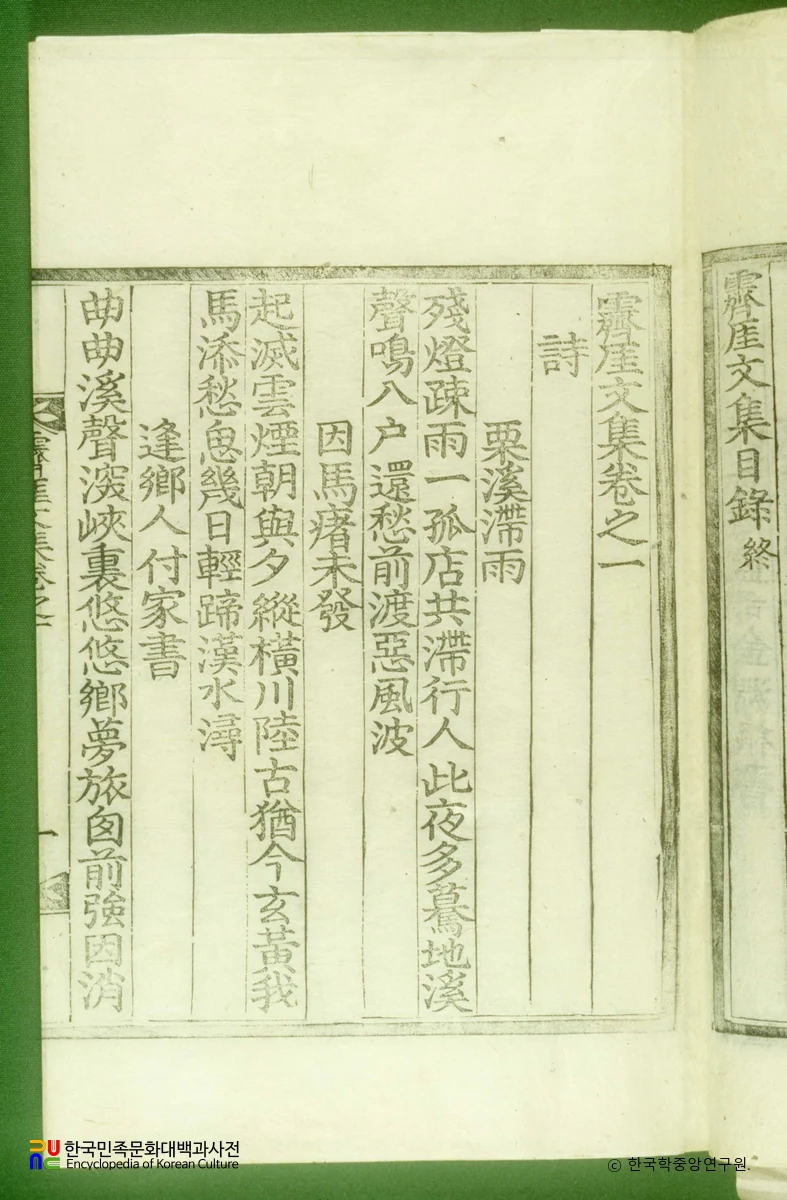 霽厓文集目錄終
霽厓文集卷之一
詩
栗溪滯雨
殘燈踈雨一孤店共滯行人此夜多驀地溪
聲鳴入户還愁前渡惡風波
因馬瘏未發
起滅雲煙朝與夕縱橫川陸古猶今玄黃我
馬添愁恖幾日輕蹄漢水潯
逢鄉人付家書
曲曲溪聲深峽裏悠悠鄉夢旅囱前強因消
霽厓文集卷之一
一
한국민족문화대백과사전
Encyclopedia of Korean Culture
© 한국학중앙연구원.